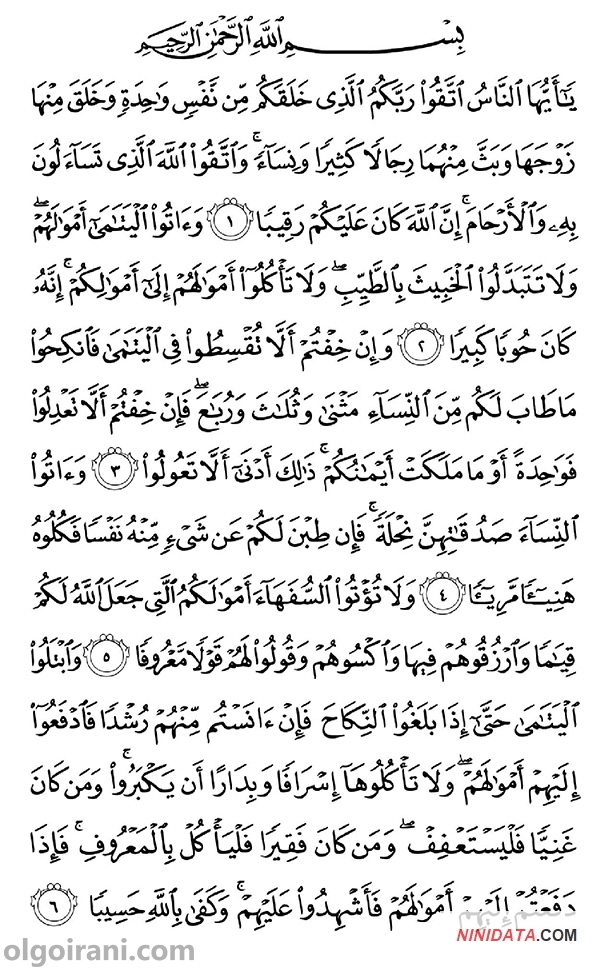 بِسْمِ اللَّهِ الرَّحْمَٰنِ الرَّحِيمِ
يَٰٓأَيُّهَا النَّاسُ اتَّقُوا۟ رَبَّكُمُ الَّذِى خَلَقَكُم مِّن نَّفْسٍ وَٰحِدَةٍ وَخَلَقَ مِنْهَا
زَوْجَهَا وَبَثَّ مِنْهُمَا رِجَالًا كَثِيرًا وَنِسَآءً ۚ وَاتَّقُوا۟ اللَّهَ الَّذِى تَسَآءَلُونَ
بِهِۦ وَالْأَرْحَامَ ۚ إِنَّ اللَّهَ كَانَ عَلَيْكُمْ رَقِيبًا ١ وَءَاتُوا۟ الْيَتَٰمَىٰٓ أَمْوَٰلَهُمْ ۖ
وَلَا تَتَبَدَّلُوا۟ الْخَبِيثَ بِالطَّيِّبِ ۖ وَلَا تَأْكُلُوٓا۟ أَمْوَٰلَهُمْ إِلَىٰٓ أَمْوَٰلِكُمْ ۚ إِنَّهُۥ
كَانَ حُوبًا كَبِيرًا ٢ وَإِنْ خِفْتُمْ أَلَّا تُقْسِطُوا۟ فِى الْيَتَٰمَىٰ فَانكِحُوا۟
مَا طَابَ لَكُم مِّنَ النِّسَآءِ مَثْنَىٰ وَثُلَٰثَ وَرُبَٰعَ ۖ فَإِنْ خِفْتُمْ أَلَّا تَعْدِلُوا۟
فَوَٰحِدَةً أَوْ مَا مَلَكَتْ أَيْمَٰنُكُمْ ۚ ذَٰلِكَ أَدْنَىٰٓ أَلَّا تَعُولُوا۟ ٣ وَءَاتُوا۟
النِّسَآءَ صَدُقَٰتِهِنَّ نِحْلَةً ۚ فَإِن طِبْنَ لَكُمْ عَن شَىْءٍ مِّنْهُ نَفْسًا فَكُلُوهُ
هَنِيٓـًٔا مَّرِيٓـًٔا ٤ وَلَا تُؤْتُوا۟ السُّفَهَآءَ أَمْوَٰلَكُمُ الَّتِى جَعَلَ اللَّهُ لَكُمْ
قِيَٰمًا وَارْزُقُوهُمْ فِيهَا وَاكْسُوهُمْ وَقُولُوا۟ لَهُمْ قَوْلًا مَّعْرُوفًا ٥ وَابْتَلُوا۟
الْيَتَٰمَىٰ حَتَّىٰٓ إِذَا بَلَغُوا۟ النِّكَاحَ فَإِنْ ءَانَسْتُم مِّنْهُمْ رُشْدًا فَادْفَعُوٓا۟
إِلَيْهِمْ أَمْوَٰلَهُمْ ۖ وَلَا تَأْكُلُوهَآ إِسْرَافًا وَبِدَارًا أَن يَكْبَرُوا۟ ۚ وَمَن كَانَ
غَنِيًّا فَلْيَسْتَعْفِفْ ۖ وَمَن كَانَ فَقِيرًا فَلْيَأْكُلْ بِالْمَعْرُوفِ ۚ فَإِذَا
دَفَعْتُمْ إِلَيْهِمْ أَمْوَٰلَهُمْ فَأَشْهِدُوا۟ عَلَيْهِمْ ۚ وَكَفَىٰ بِاللَّهِ حَسِيبًا ٦
NINIDATA.COM
olgoirani.com